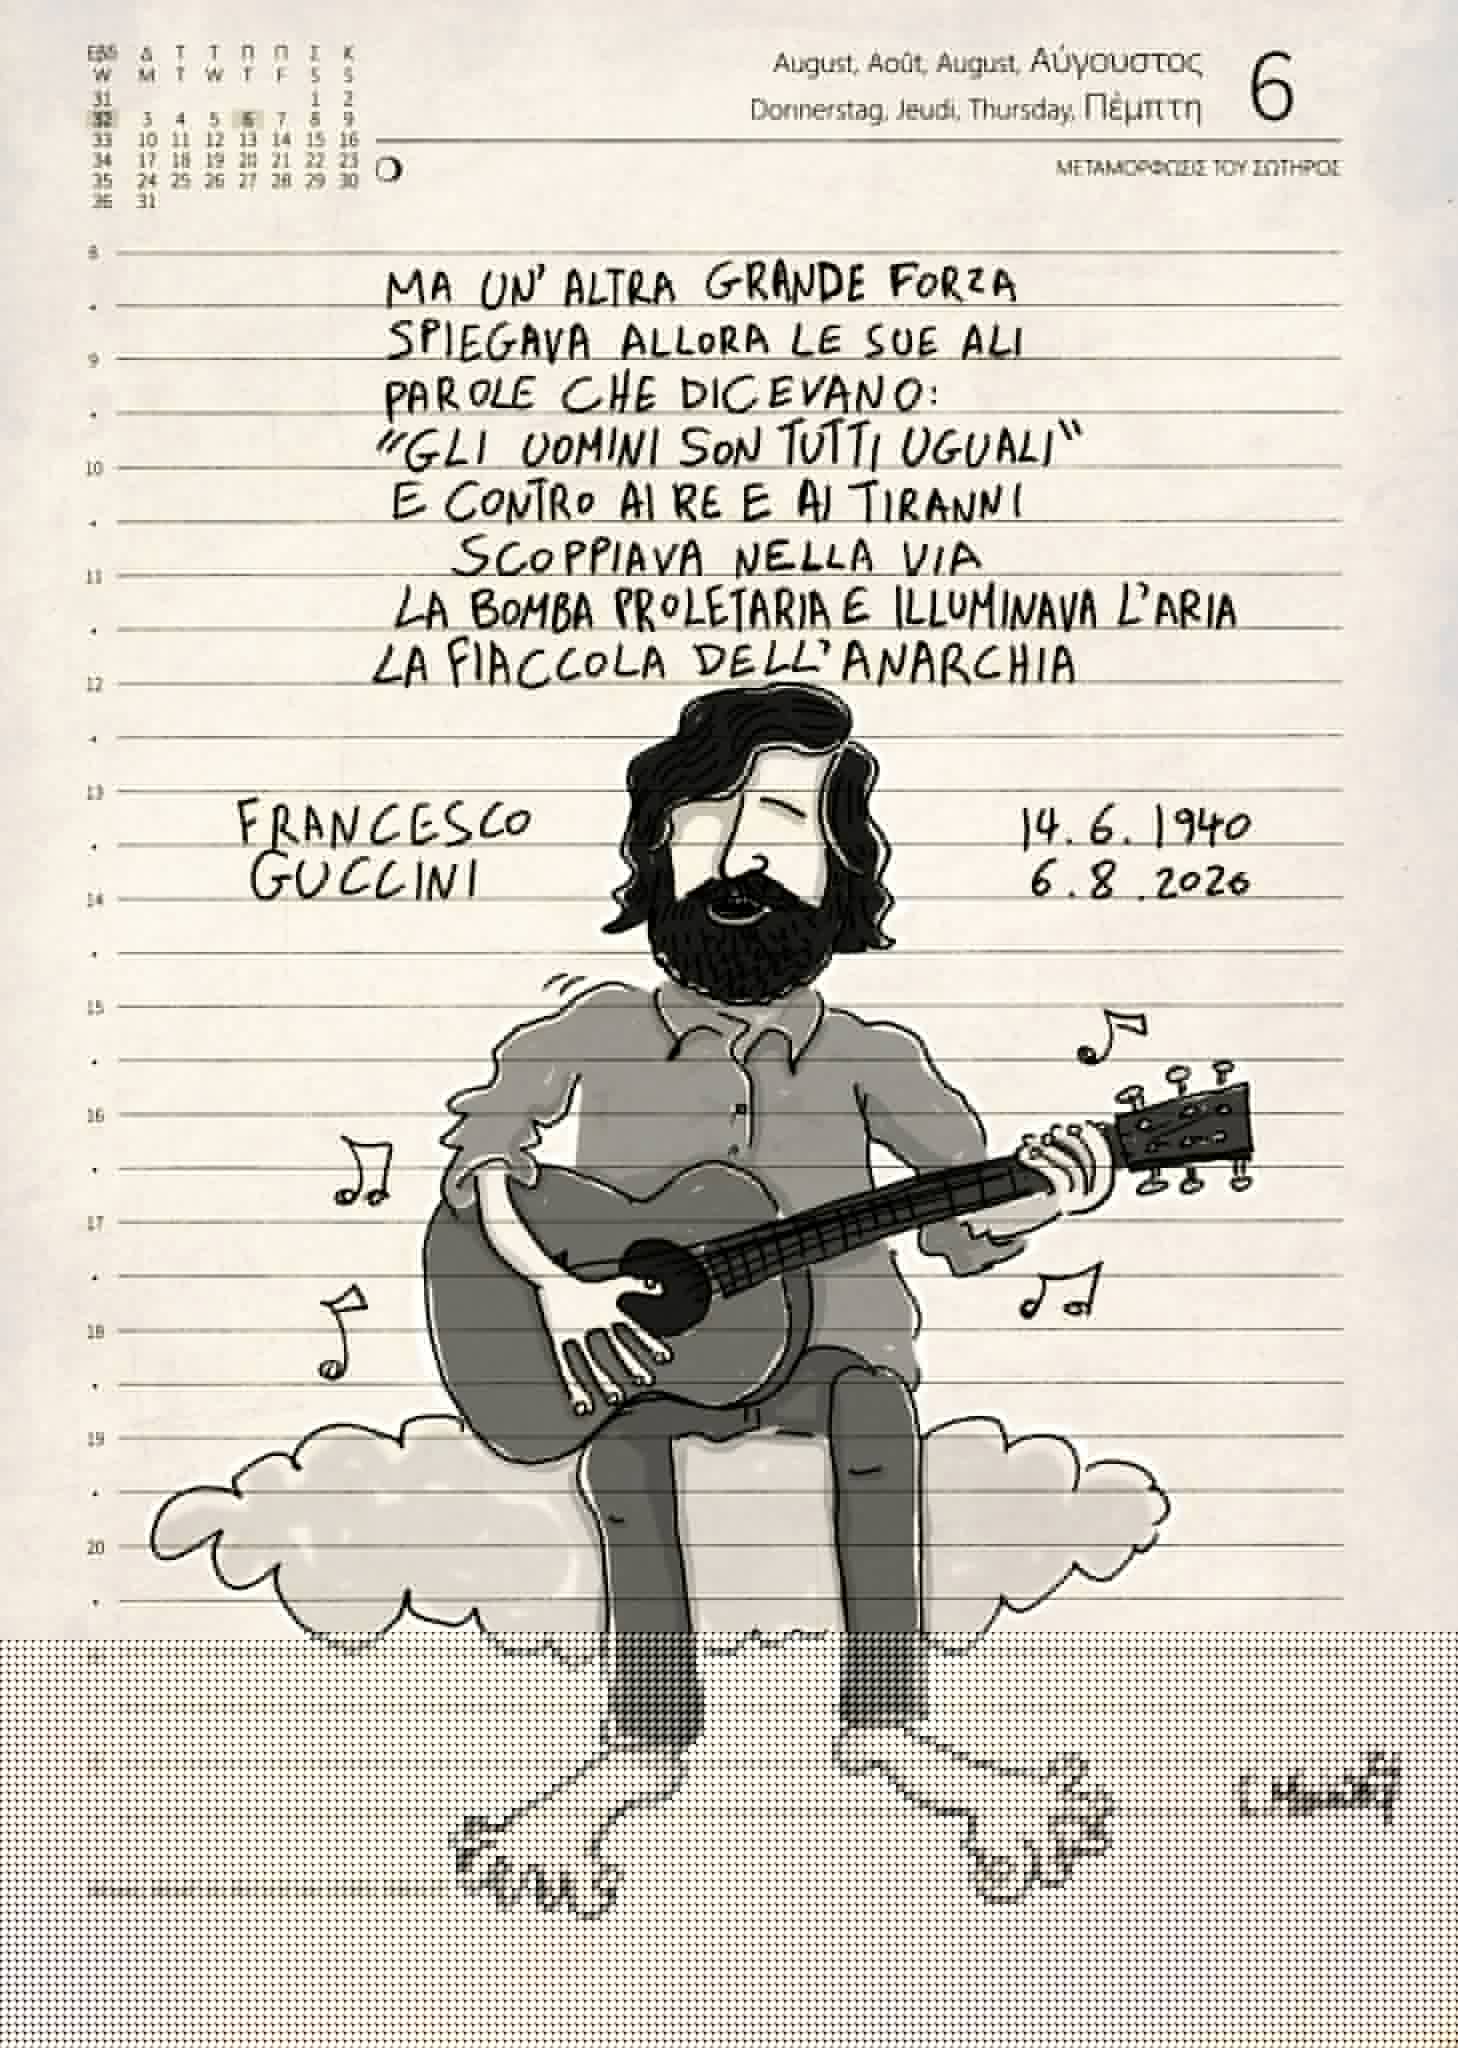 ΕΒΔ Δ Τ Τ Π Π Σ Κ
W M T W T F S S
31 1 2
32 3 4 5 6 7 8 9
33 10 11 12 13 14 15 16
34 17 18 19 20 21 22 23
35 24 25 26 27 28 29 30
36 31
August, Août, August, Αύγουστος
Donnerstag, Jeudi, Thursday, Πέμπτη
6
ΜΕΤΑΜΟΡΦΩΣΙΣ ΤΟΥ ΣΩΤΗΡΟΣ
8
MA UN' ALTRA GRANDE FORZA
SPIEGAVA ALLORA LE SUE ALI
9
PAROLE CHE DICEVANO:
"GLI UOMINI SON TUTTI UGUALI"
10
E CONTRO AI RE E AI TIRANNI
SCOPPIAVA NELLA VIA
11
LA BOMBA PROLETARIA E ILLUMINAVA L'ARIA
LA FIACCOLA DELL'ANARCHIA
12
13
FRANCESCO
GUCCINI
14.6.1940
6.8.2026
14
15
16
17
18
19
20